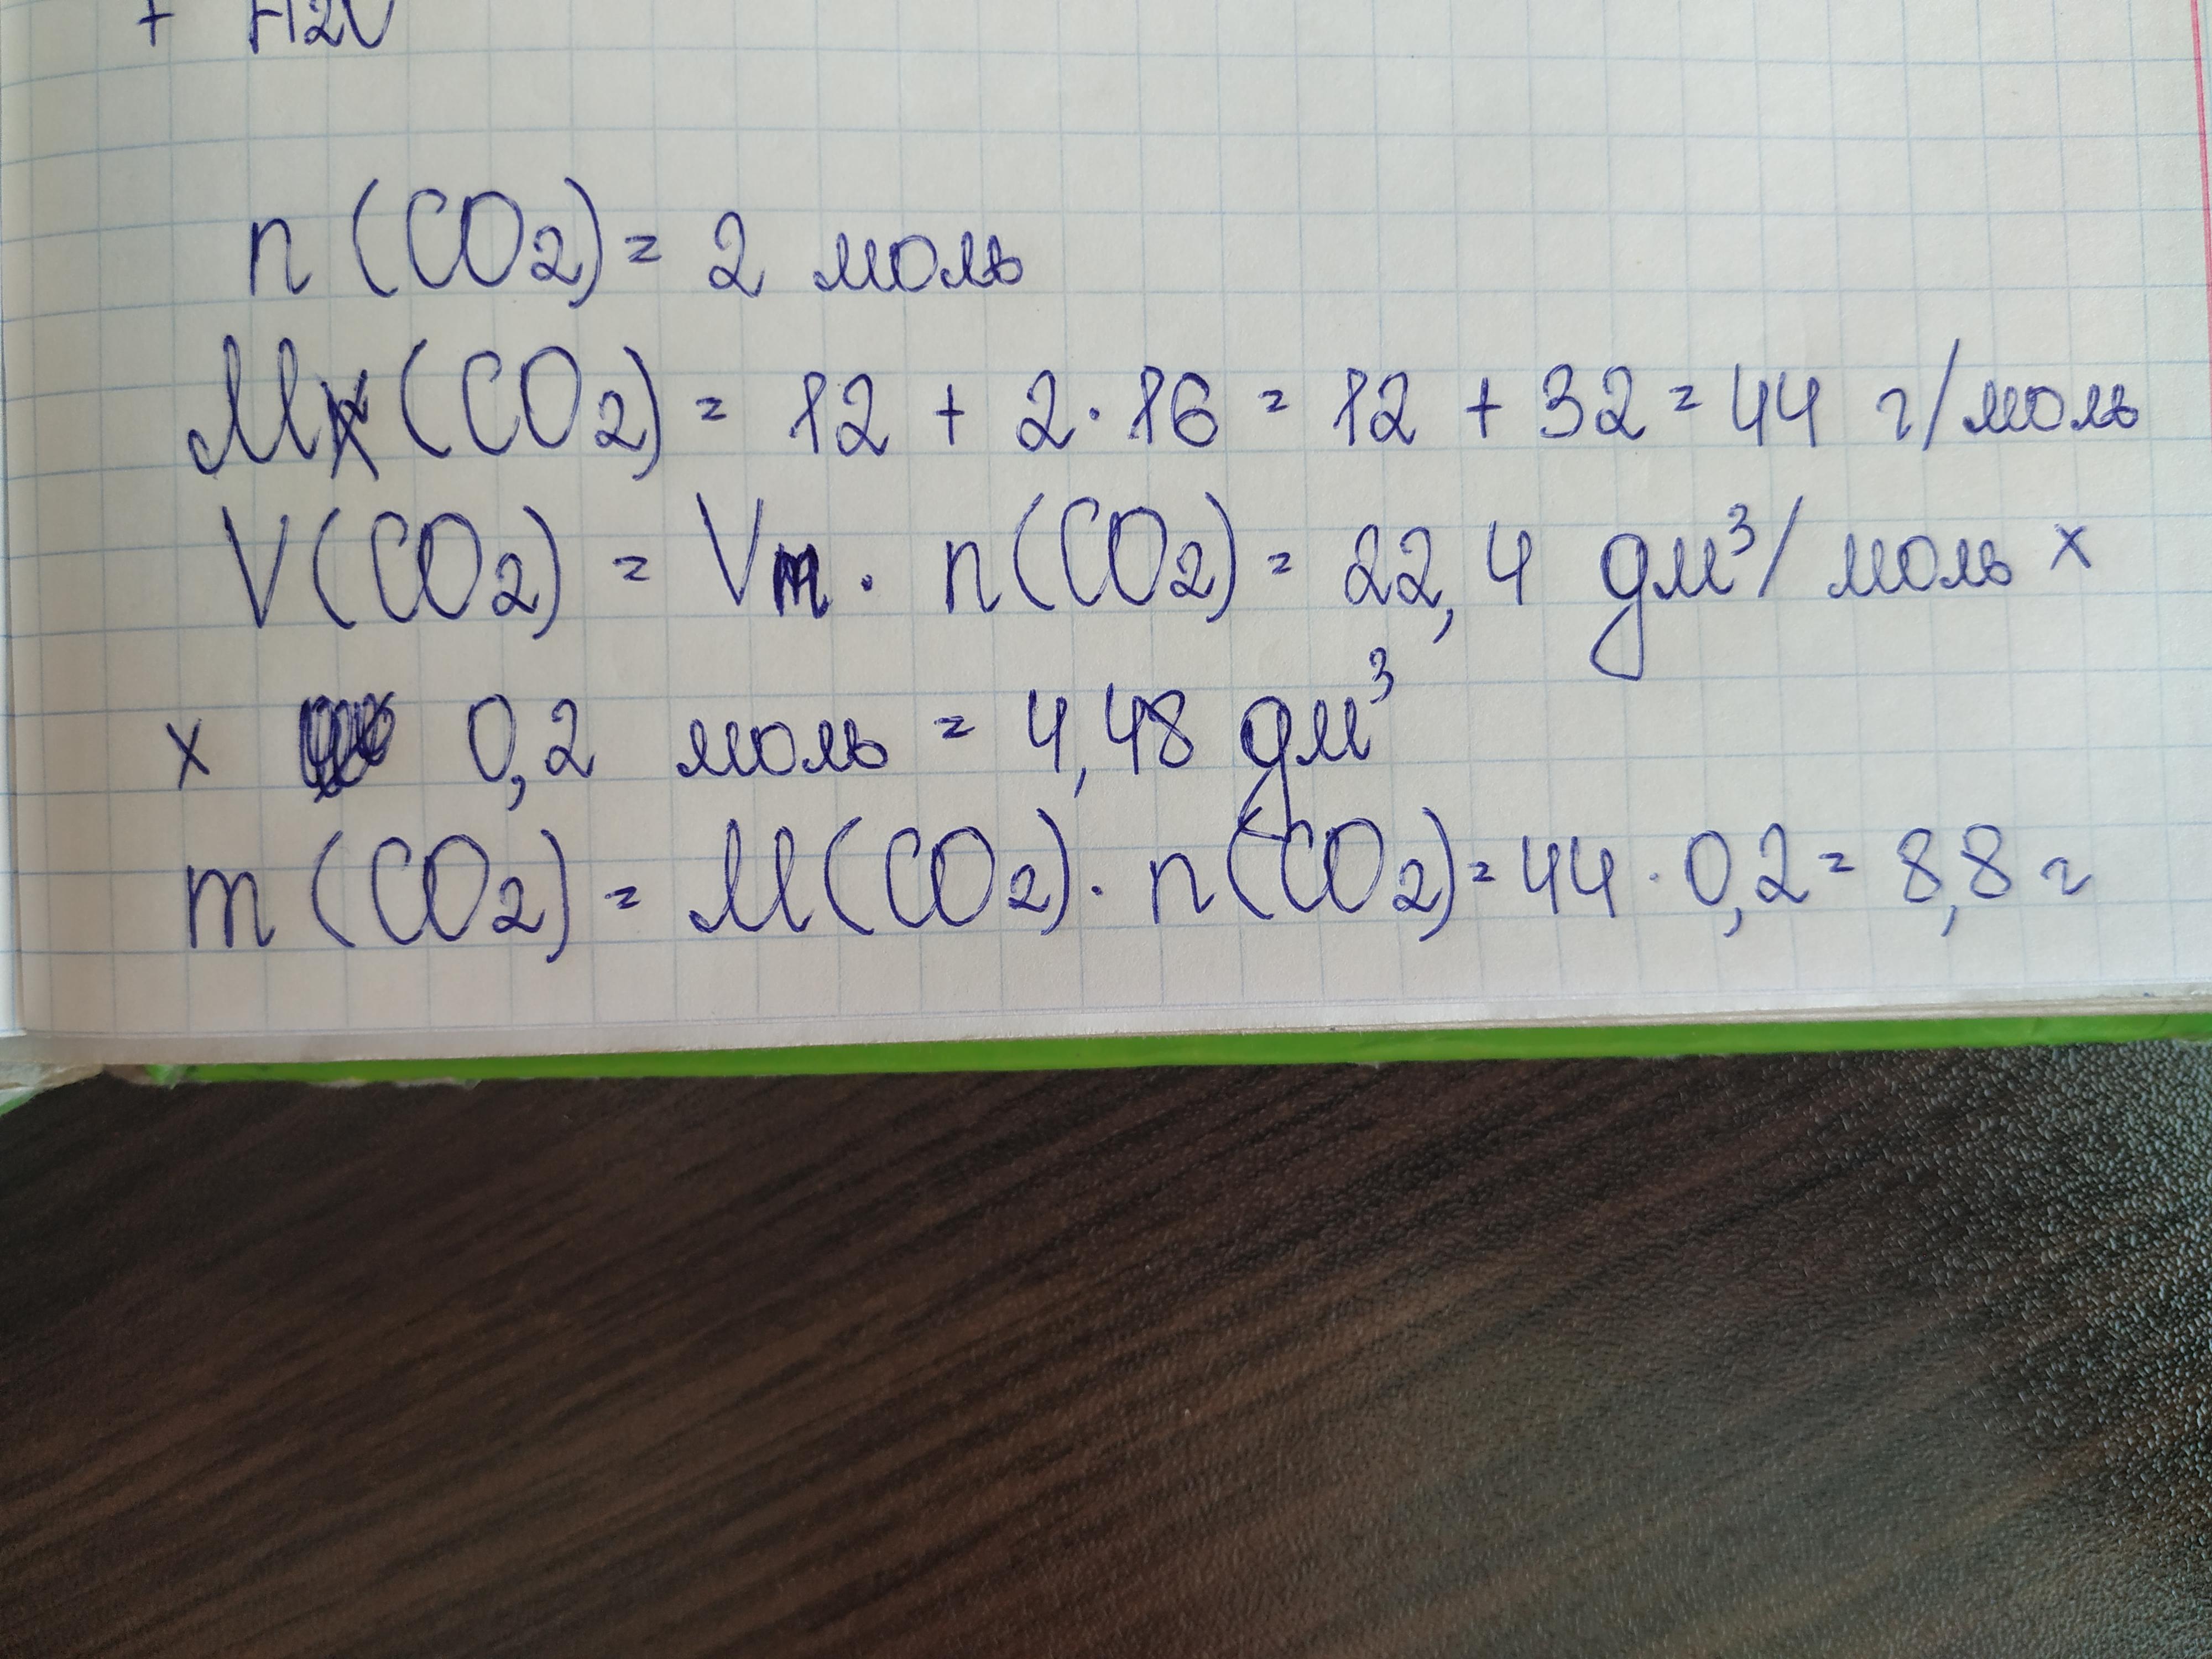 + H2O
n (CO2) = 2 моль
M (CO2) = 12 + 2·16 = 12 + 32 = 44 г/моль
V (CO2) = Vm · n (CO2) = 22,4 дм³/моль ×
× 0,2 моль = 4,48 дм³
m (CO2) = M (CO2) · n (CO2) = 44 · 0,2 = 8,8 г